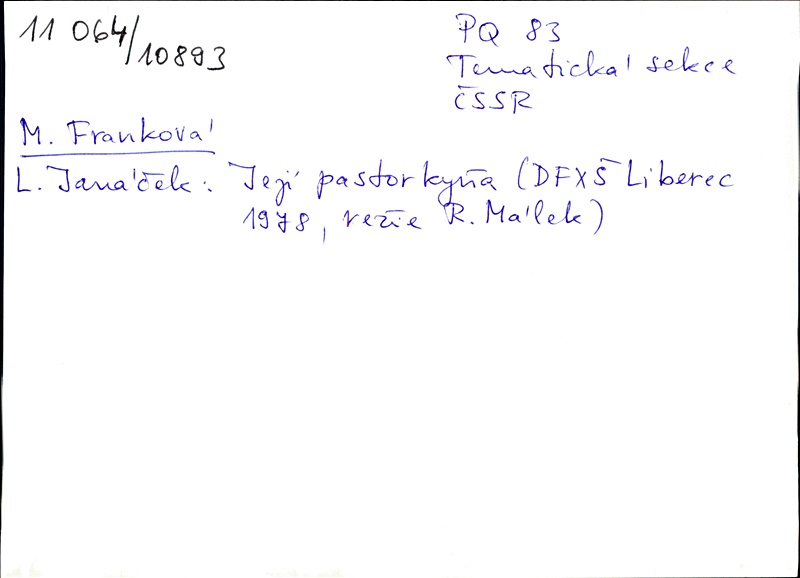 11 064/10893
PQ 83
Tematická sekce
ČSSR
M. Franková
L. Janáček: Její pastorkyňa (DFXŠ Liberec
1978, režie R. Málek)